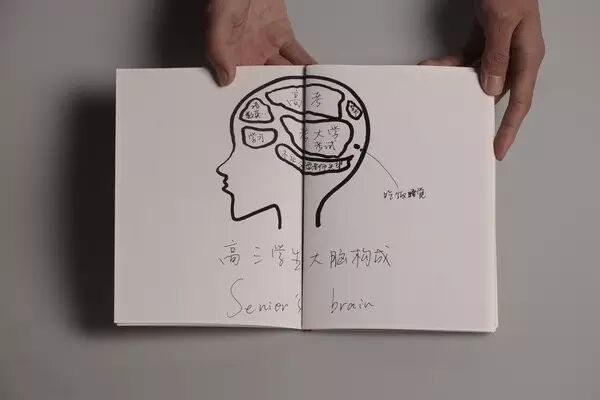 高考
学习
考大学
考试
吃饭睡觉
高三学生大脑构成
Senior's brain